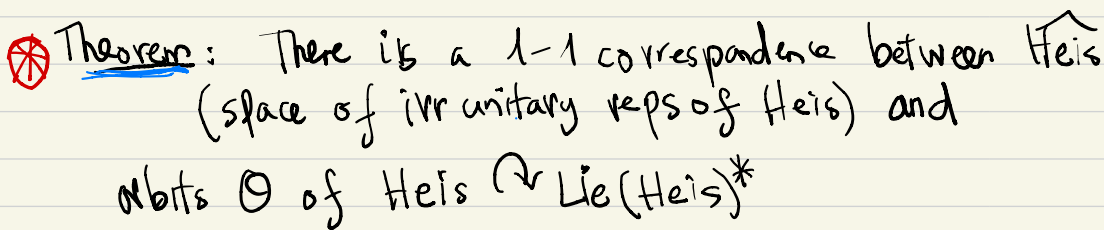 ⊛ Theorem: There is a 1-1 correspondence between \widehat{Heis}
(space of irr unitary reps of Heis) and
orbits Θ of Heis ↷ Lie(Heis)*